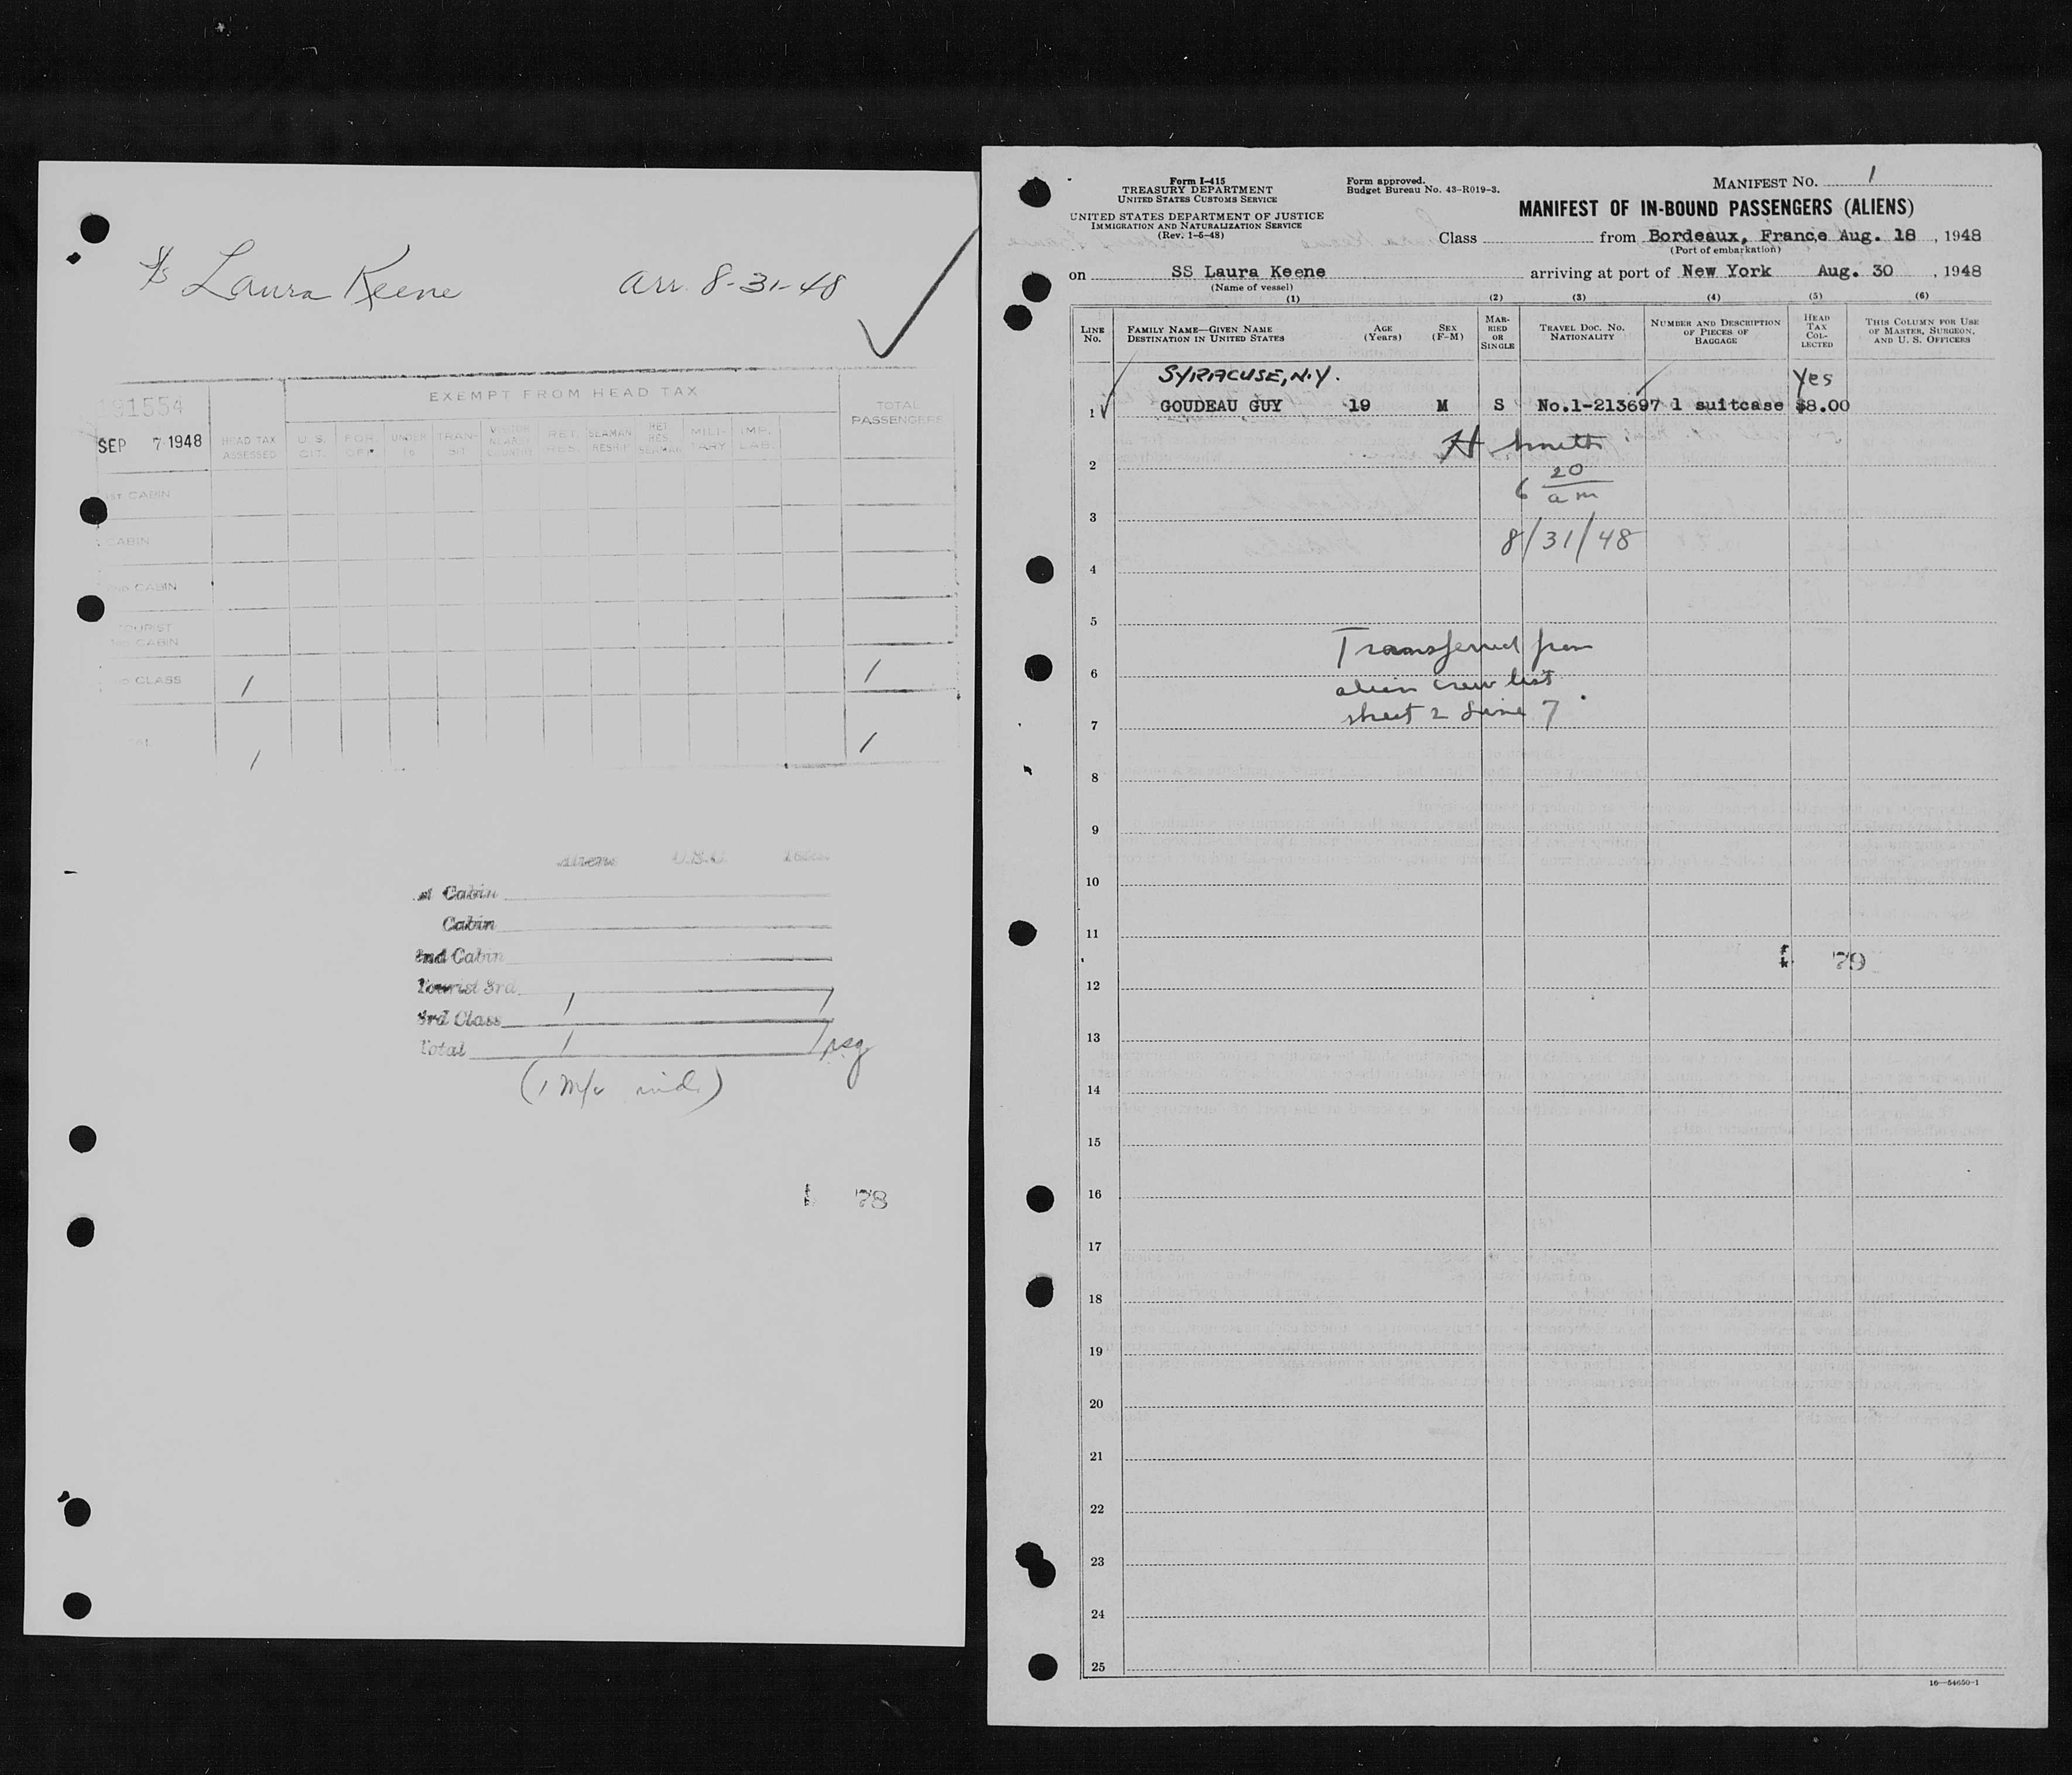 S/S Laura Keene arr. 8-31-48
191554
SEP 7 1948
EXEMPT FROM HEAD TAX
TOTAL PASSENGERS
HEAD TAX ASSESSED
U.S. CIT.
FOR.
UNDER 16
TRAN-SIT
RET. RES.
SEAMAN RESHIP
RET. RES. SEAMAN
MILI-TARY
IMP. LAB.
1st CABIN
CABIN
CABIN
TOURIST
CABIN
CLASS 1 1
1 1
Aliens U.S.C. Total
Cabin
Cabin
2nd Cabin
Tourist 3rd
3rd Class 1 1
Total 1 1 psg
78
Form I-415
TREASURY DEPARTMENT
UNITED STATES CUSTOMS SERVICE
UNITED STATES DEPARTMENT OF JUSTICE
IMMIGRATION AND NATURALIZATION SERVICE
(Rev. 1-5-48)
Form approved.
Budget Bureau No. 43-R019-3.
MANIFEST NO. 1
MANIFEST OF IN-BOUND PASSENGERS (ALIENS)
Class from Bordeaux, France Aug. 18, 1948
(Port of embarkation)
on SS Laura Keene arriving at port of New York Aug. 30, 1948
(Name of vessel)
(1) (2) (3) (4) (5) (6)
LINE No.
FAMILY NAME—GIVEN NAME
DESTINATION IN UNITED STATES
AGE (Years)
SEX (F-M)
MAR-RIED OR SINGLE
TRAVEL DOC. NO. NATIONALITY
NUMBER AND DESCRIPTION OF PIECES OF BAGGAGE
HEAD TAX COL-LECTED
THIS COLUMN FOR USE OF MASTER, SURGEON, AND U. S. OFFICERS
SYRACUSE, N.Y. Yes
1 GOUDEAU GUY 19 M S No.1-213697 1 suitcase $8.00
2
6 20 am
3
8/31/48
4
5
Transferred from
6
alien crew list
sheet 2 Line 7
7
8
9
10
11
79
12
13
14
15
16
17
18
19
20
21
22
23
24
25
16—54650-1